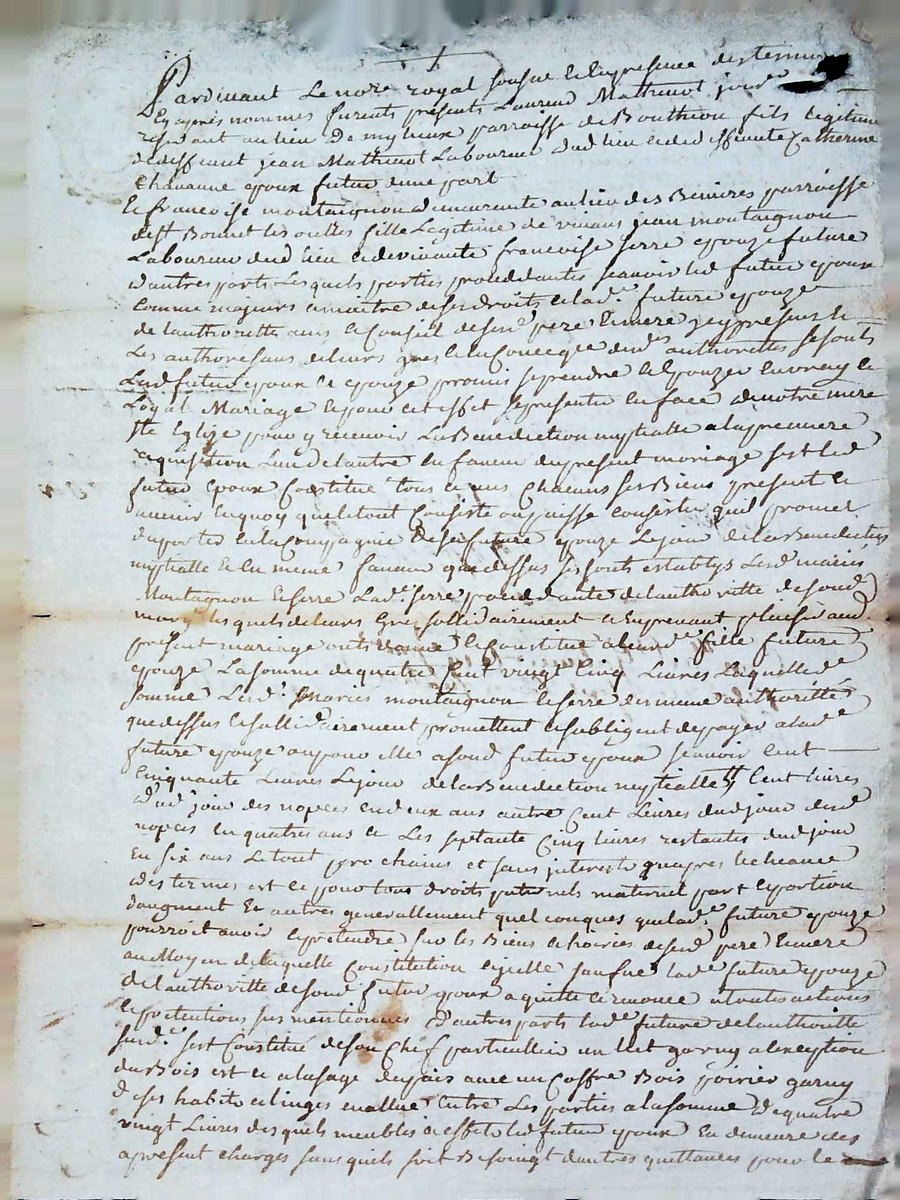 Pardevant Le no.re royal sousne et en presence des temoins
cy apres nommes furents presents Laurend Mathevot jour.er
residant au lieu de mylieux parroisse de Bonthion fils Legitime
de deffeunt jean Mathevot Laboureur dud lieu et de deffeunte Catherine
Chavanne epoux futur d'une part
Et francoise montaignon demeurente au lieu des Beviores parroisse
de st Bonnet les oulles fille Legitime de vivans jean montaignon
Laboureur dud lieu et de vivante francoise serre epouze future
d'autres parts Lesquels parties proceddantes scavoir led futur epoux
comme majeurs et maitre de ses droits et lad.e future epouze
de l'authoritté avis et conseil de ses d. pere et mere icy presents et
Les authorisans de leurs grés et en la Conceqce desd.es authorittés se sonts
Lesd futur epoux et epouze promis se prendre et Epouzer en vray et
Loyal Mariage et pour cet effet se presenter en face de notre mere
ste Eglize pour y recevoir La Benediction nuptialle a la premiere
requisition L'un de l'autre En faveur du present mariage sest led
futur Epoux Constitué tous et uns Chacuns ses Biens present et
avenir En quoy que le tout Consiste ou puisse consister quil promet
d'aporter En la Compagnie de sa future Epouze Lejour de la Benediction
nuptialle Et En meme faveur que dessus se sonts establys Lesd mariés
Montaignon et serre Lad.e serre proceddante de l'authoritté de sond
mary lesquels de leurs Grés sollidairement et En presant plaisir aud
present mariage onts donné et Constitué a leurd.e fille future
epouze La somme de quatre Cent vingt Cinq Livres Laquelle d.e
somme Lesd. mariés montaignon et serre de meme authoritté
que dessus et sollidairement promettent et s'obligent de payer a lad.e
future epouze ou pour elle a sond futur epoux scavoir Cent
Cinquante Livres Lejour de la Benediction nuptialle Cent livres
d'ud jour des nopces en deux ans autre Cent Livres dud jour desd
nopces En quatres ans et Les septante Cinq livres restantes dud jour
En six ans Le tout prochains et sans interests qu'apres l'echeance
des termes est ce pour tous droits paternels maternel part et portion
d'augment Et autres generallement quelconques que lad.e future epouze
pourroit avoir et pretendre sur les Biens et hoiries de sesd pere et mere
au Moyen de laquelle Constitution icelle lad.e future epouze
de l'authoritté de sond futur epoux a quitté et renoncé a toutes actions
et pretentions sus mentionnés d'autres parts lad.e future de l'authoritté
susd.e sest Constitué de son Chef particullier un Lict garny a l'exeption
du Bois est ce a l'usage du pais avec un Coffre Bois poirier garny
de ses habits et linges evallué Entre Les parties a la somme de quatre
vingt Livres desquels meubles et effets led futur epoux En demeure des
a present chargés sans quels soit Besoingt d'autres quittances pour le